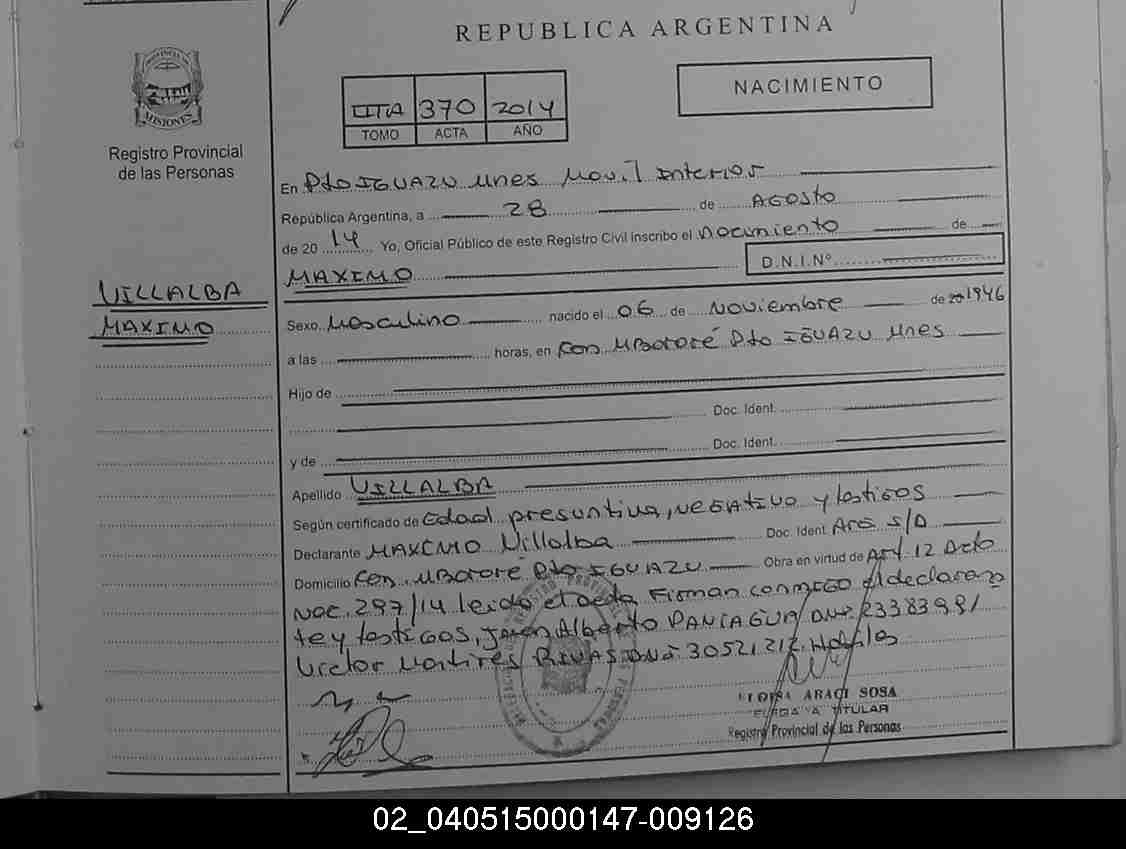 REPUBLICA ARGENTINA
PROVINCIA DE
MISIONES
Registro Provincial
de las Personas
370 2014
TOMO ACTA AÑO
NACIMIENTO
En Pto IGUAZU Mnes Movil Interior
República Argentina, a 28 de AGOSTO
de 20 14 Yo, Oficial Público de este Registro Civil inscribo el Nacimiento de
MAXIMO D.N.I.Nº
VILLALBA
MAXIMO
Sexo Masculino nacido el 06 de Noviembre de 1946
a las horas, en MBororé Pto IGUAZU Mnes
Hijo de
Doc. Ident.
y de Doc. Ident.
Apellido VILLALBA
Según certificado de Edad presuntiva, NEGATIVO y testigos
Declarante MAXIMO Villalba Doc. Ident. Arg S/D
Domicilio MBororé Pto IGUAZU Obra en virtud de Art. 12 Dcto
Nac. 297/14 leido el acta Firman conmigo el declaran
te y testigos, Alberto PANIAGUA DNI 23383991
Victor Martires RIVAS DNI 30521212 Habiles
ARACI SOSA
TITULAR
Registro Provincial de las Personas
02_040515000147-009126